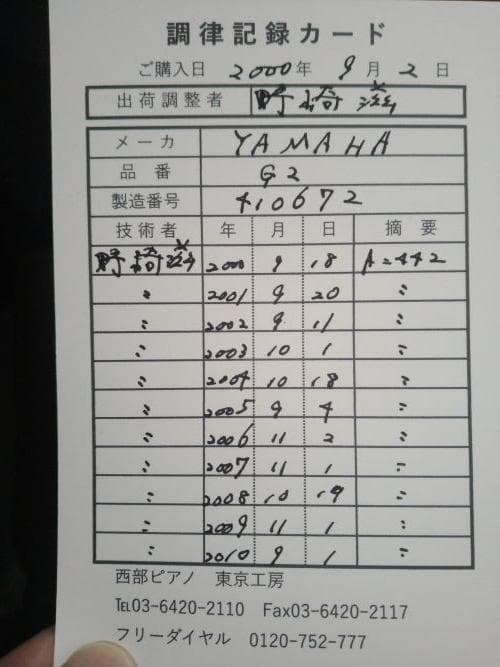 調律記録カード
ご購入日 2000年 9月 2日
出荷調整者 野崎
メーカ YAMAHA
品番 G2
製造番号 410672
技術者 年 月 日 摘要
野崎 2000 9 18 A=442
〃 2001 9 20 〃
〃 2002 9 11 〃
〃 2003 10 1 〃
〃 2004 10 18 〃
〃 2005 9 4 〃
〃 2006 11 2 〃
〃 2007 11 1 〃
〃 2008 10 19 〃
〃 2009 11 1 〃
〃 2010 9 1 〃
西部ピアノ 東京工房
℡03-6420-2110 Fax03-6420-2117
フリーダイヤル 0120-752-777